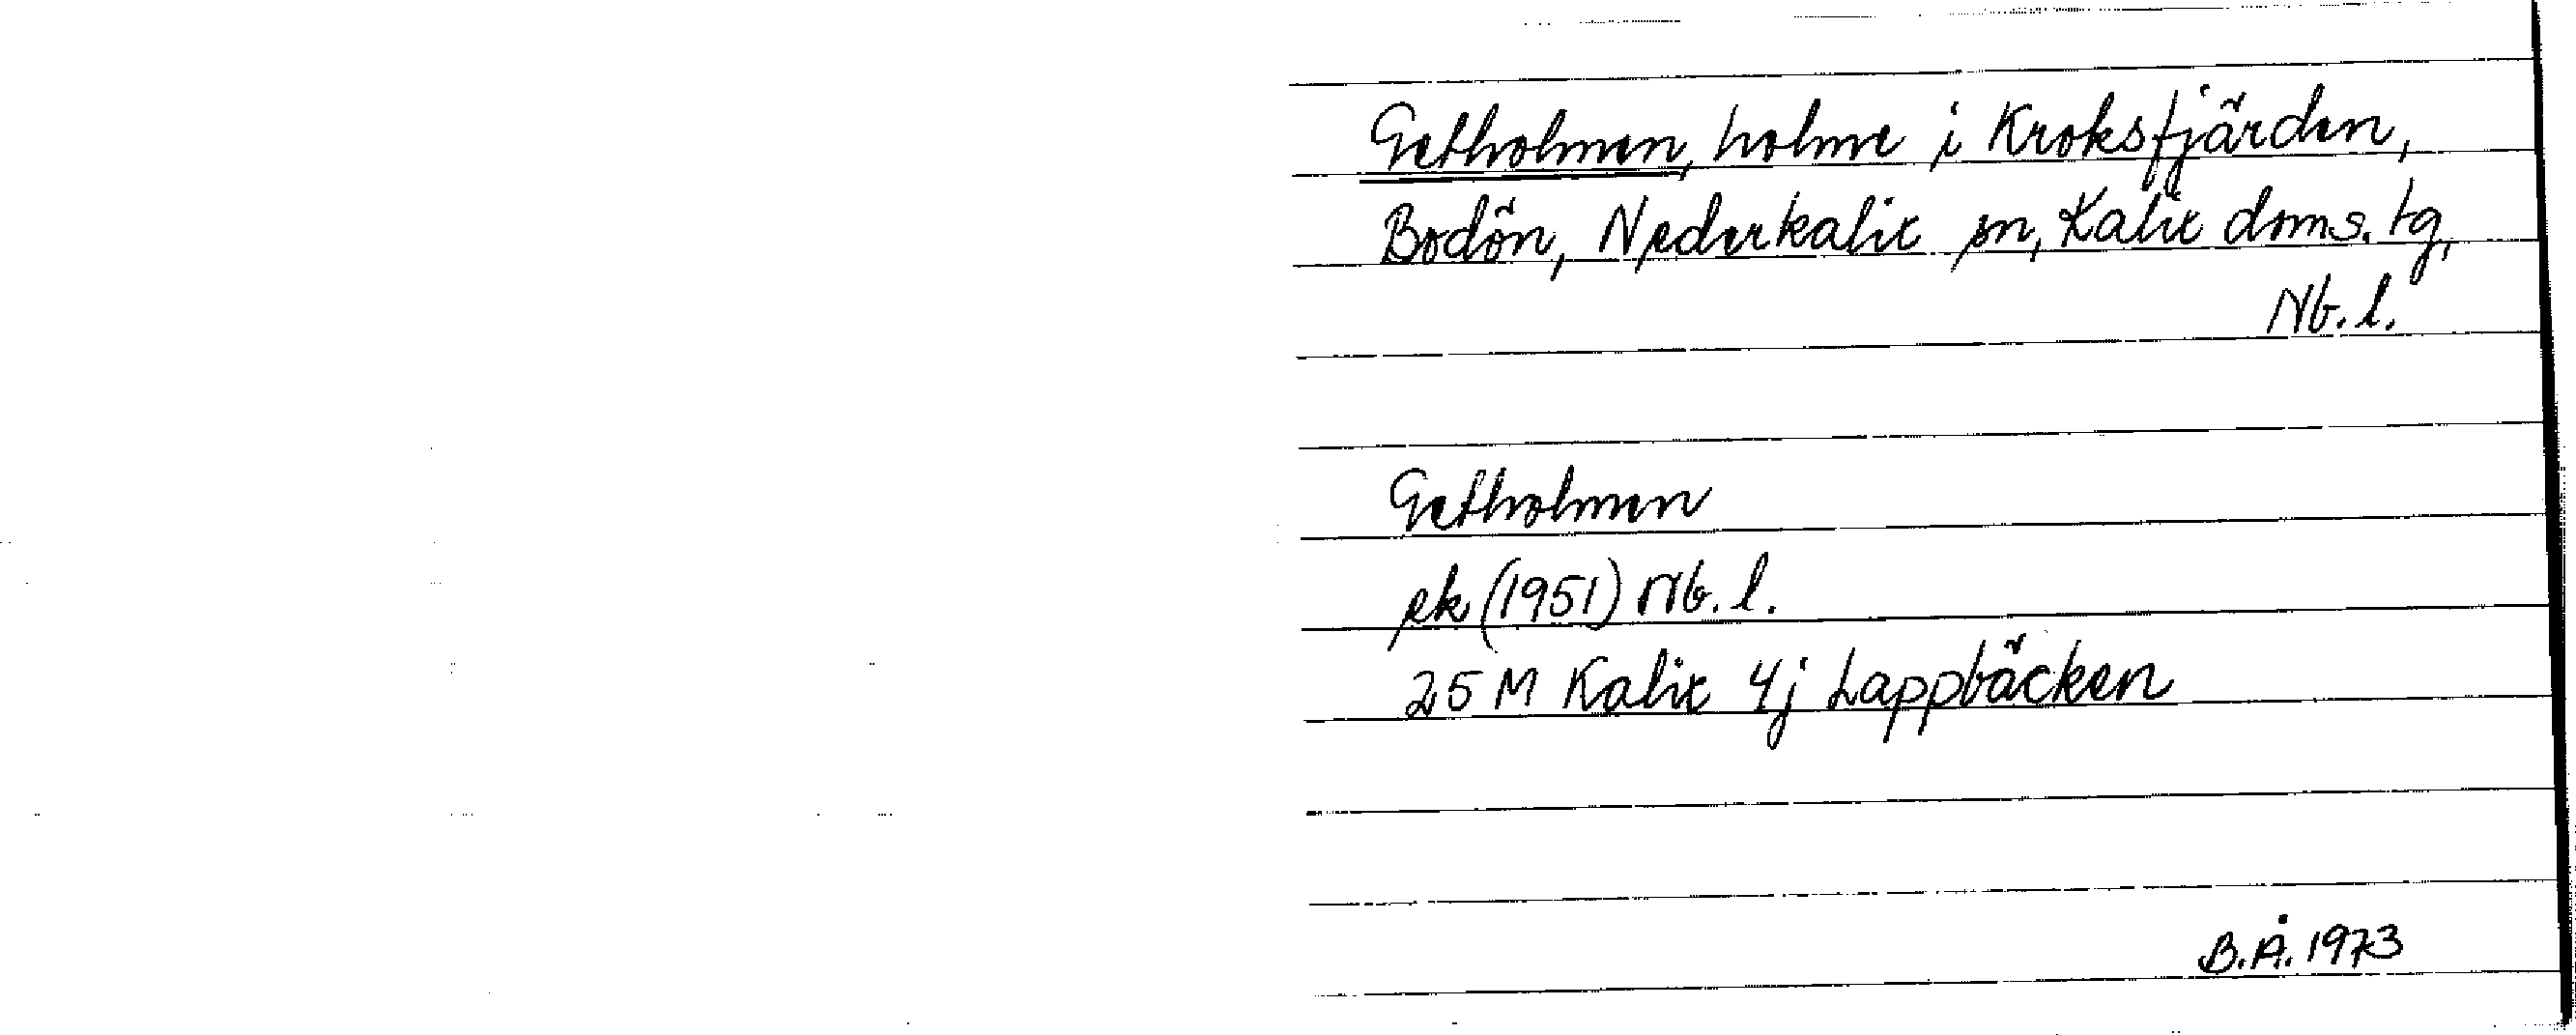 Getholmen, holme i Kroksfjärden,
Bodön, Nederkalix sn, Kalix doms. tg,
Nb. l.
Getholmen
ek (1951) Nb. l.
25 M Kalix 4j Lappbäcken
B.Å. 1973